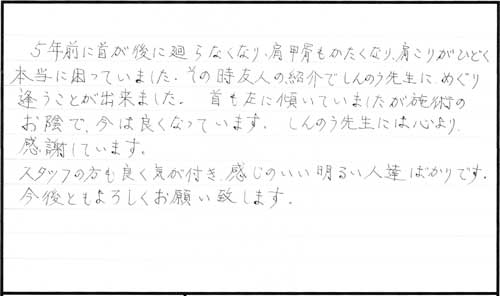 5年前に首が後に廻らなくなり、肩甲骨もかたくなり、肩こりがひどく
本当に困っていました。その時友人の紹介でしんのう先生に、めぐり
逢うことが出来ました。 首も左に傾いていましたが施術の
お陰で、今は良くなっています。 しんのう先生には心より
感謝しています。
スタッフの方も良く気が付き、感じのいい明るい人達ばかりです。
今後ともよろしくお願い致します。